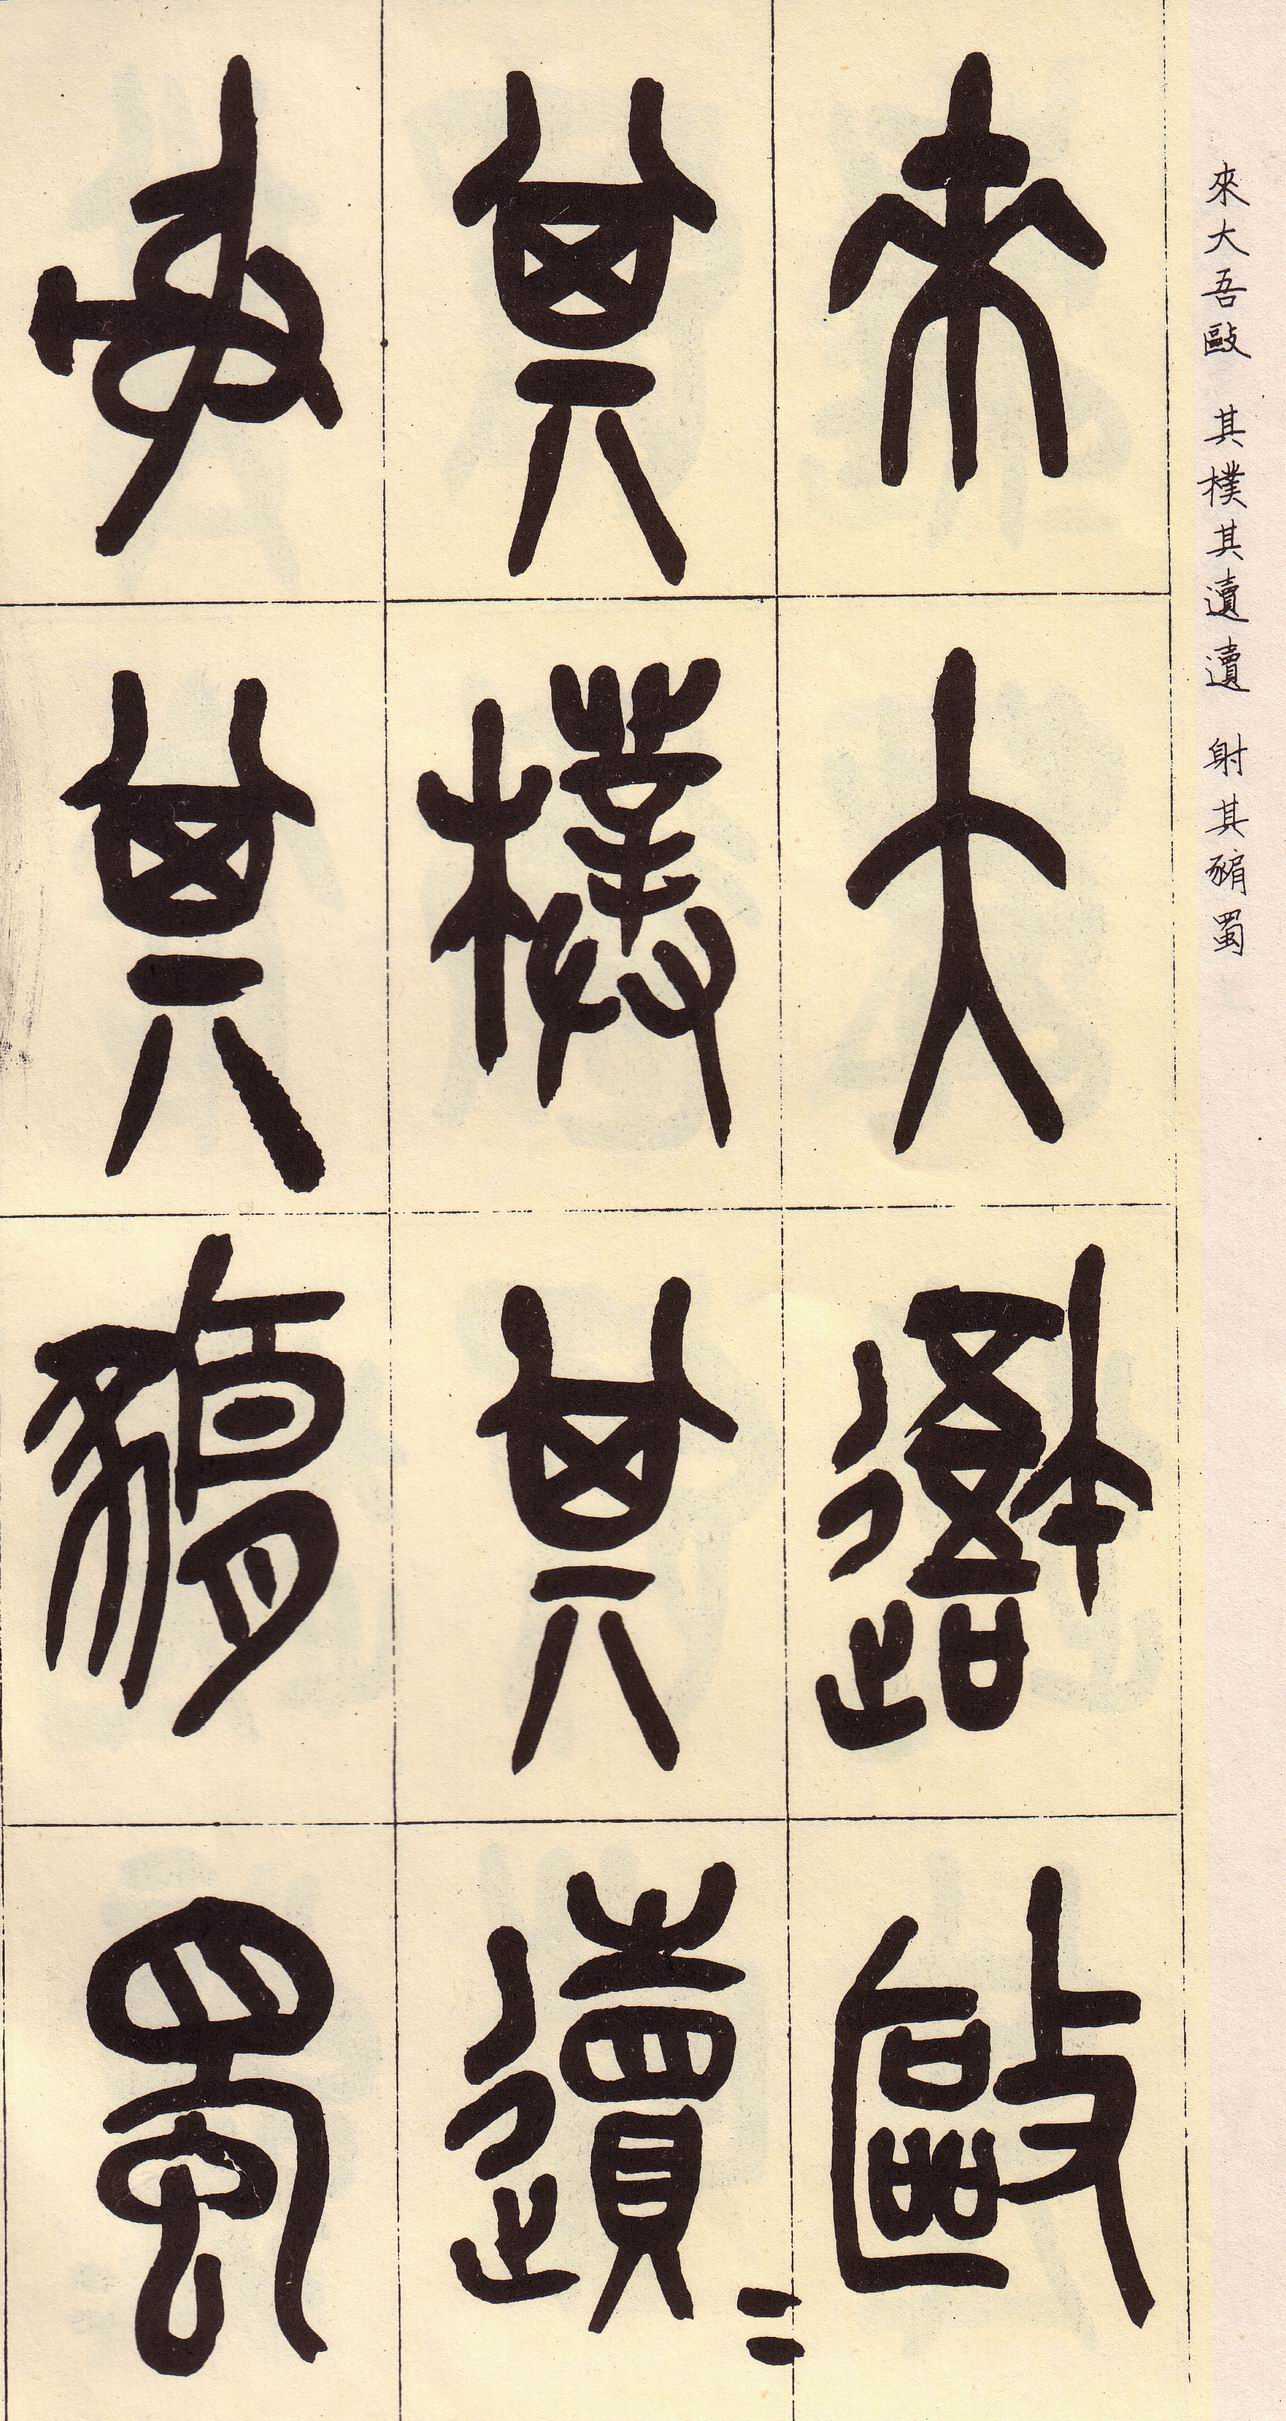 來大吾敺 其樸其遺遺 射其豜蜀
來大𨖍敺
其樸其遺=
射其豜蜀